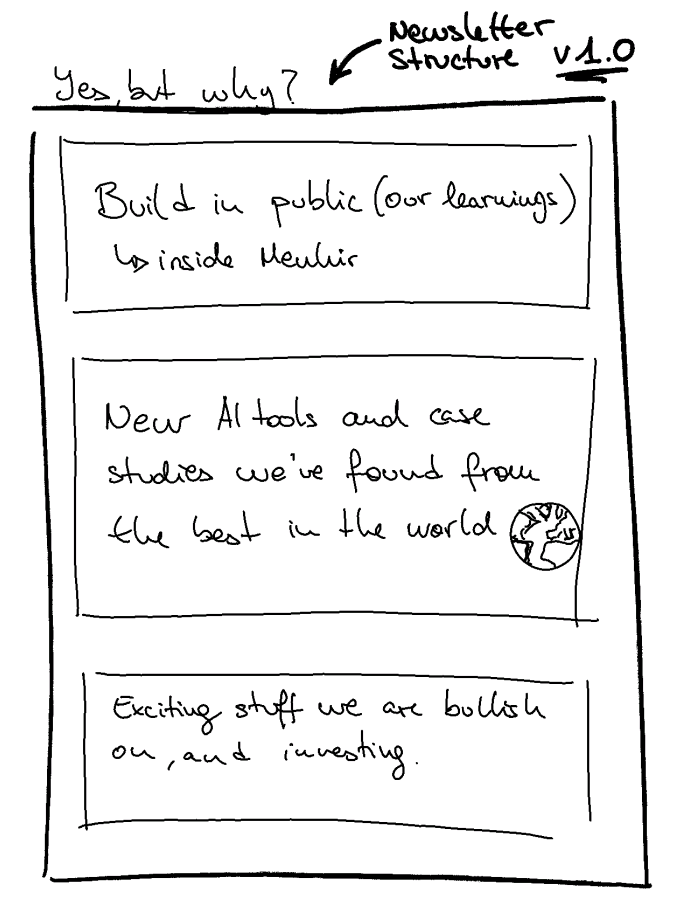 Newsletter
Structure v1.0
Yes, but why?
Build in public (our learnings)
↳ inside Menhir
New AI tools and case
studies we've found from
the best in the world
Exciting stuff we are bullish
on, and investing.